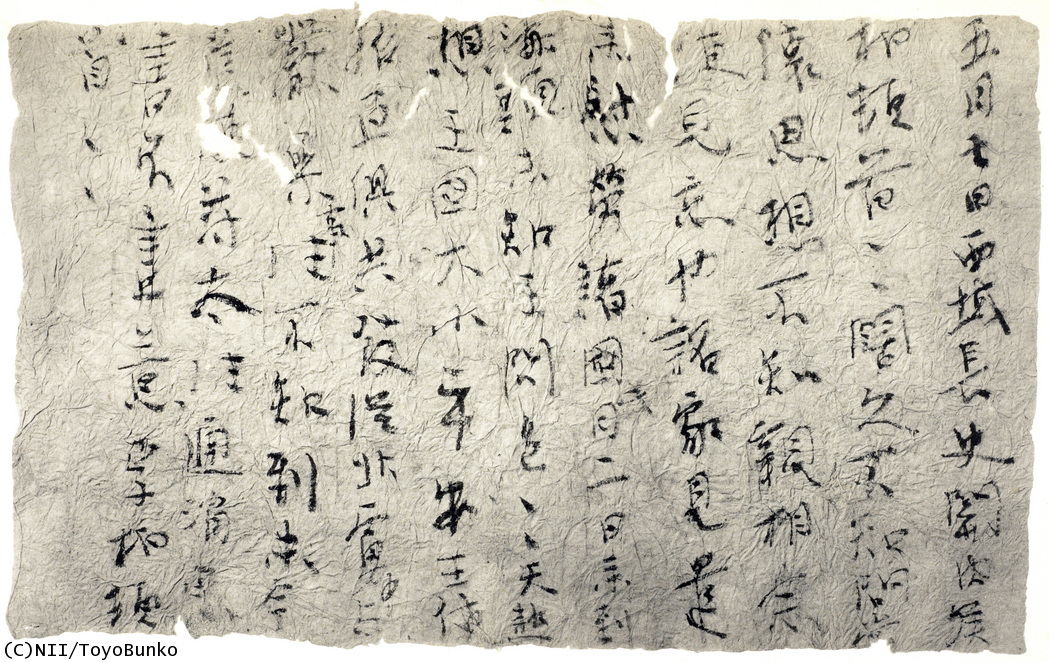 五月七日西域長史關內侯
柏頓首々闊久不知問常
懷思想不知親相念
便見忘也詔家見遣
來慰勞諸國此月二日來到
海頭未知王問邑々天熱
想王國大小平安王使
招亘俱共發從北虜中與
嚴參事往不知到未今
遣使苻太往通消息
書不盡意李柏頓
首々